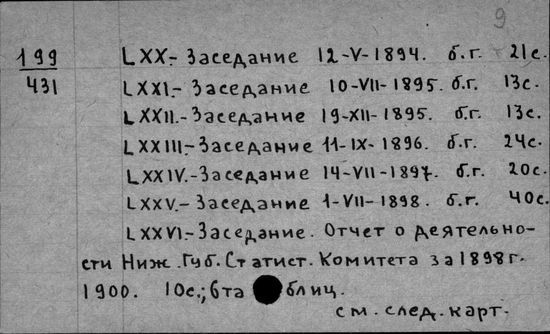 9
199 LXX.- Заседание 12-V-1894. б.г. 21с.
431 LXXI.- Заседание 10-VII-1895. б.г. 13с.
LXXII.- Заседание 19-XII-1895. б.г. 13с.
LXXIII.- Заседание 11-IX-1896. б.г. 24с.
LXXIV.- Заседание 14-VII-1897. б.г. 20с.
LXXV.- Заседание 1-VII-1898. б.г. 40с.
LXXVI.- Заседание. Отчет о деятельно-
сти Ниж. Губ. Статист. Комитета за 1898г.
1900. 10с.; 6 та блиц.
см. след. карт.